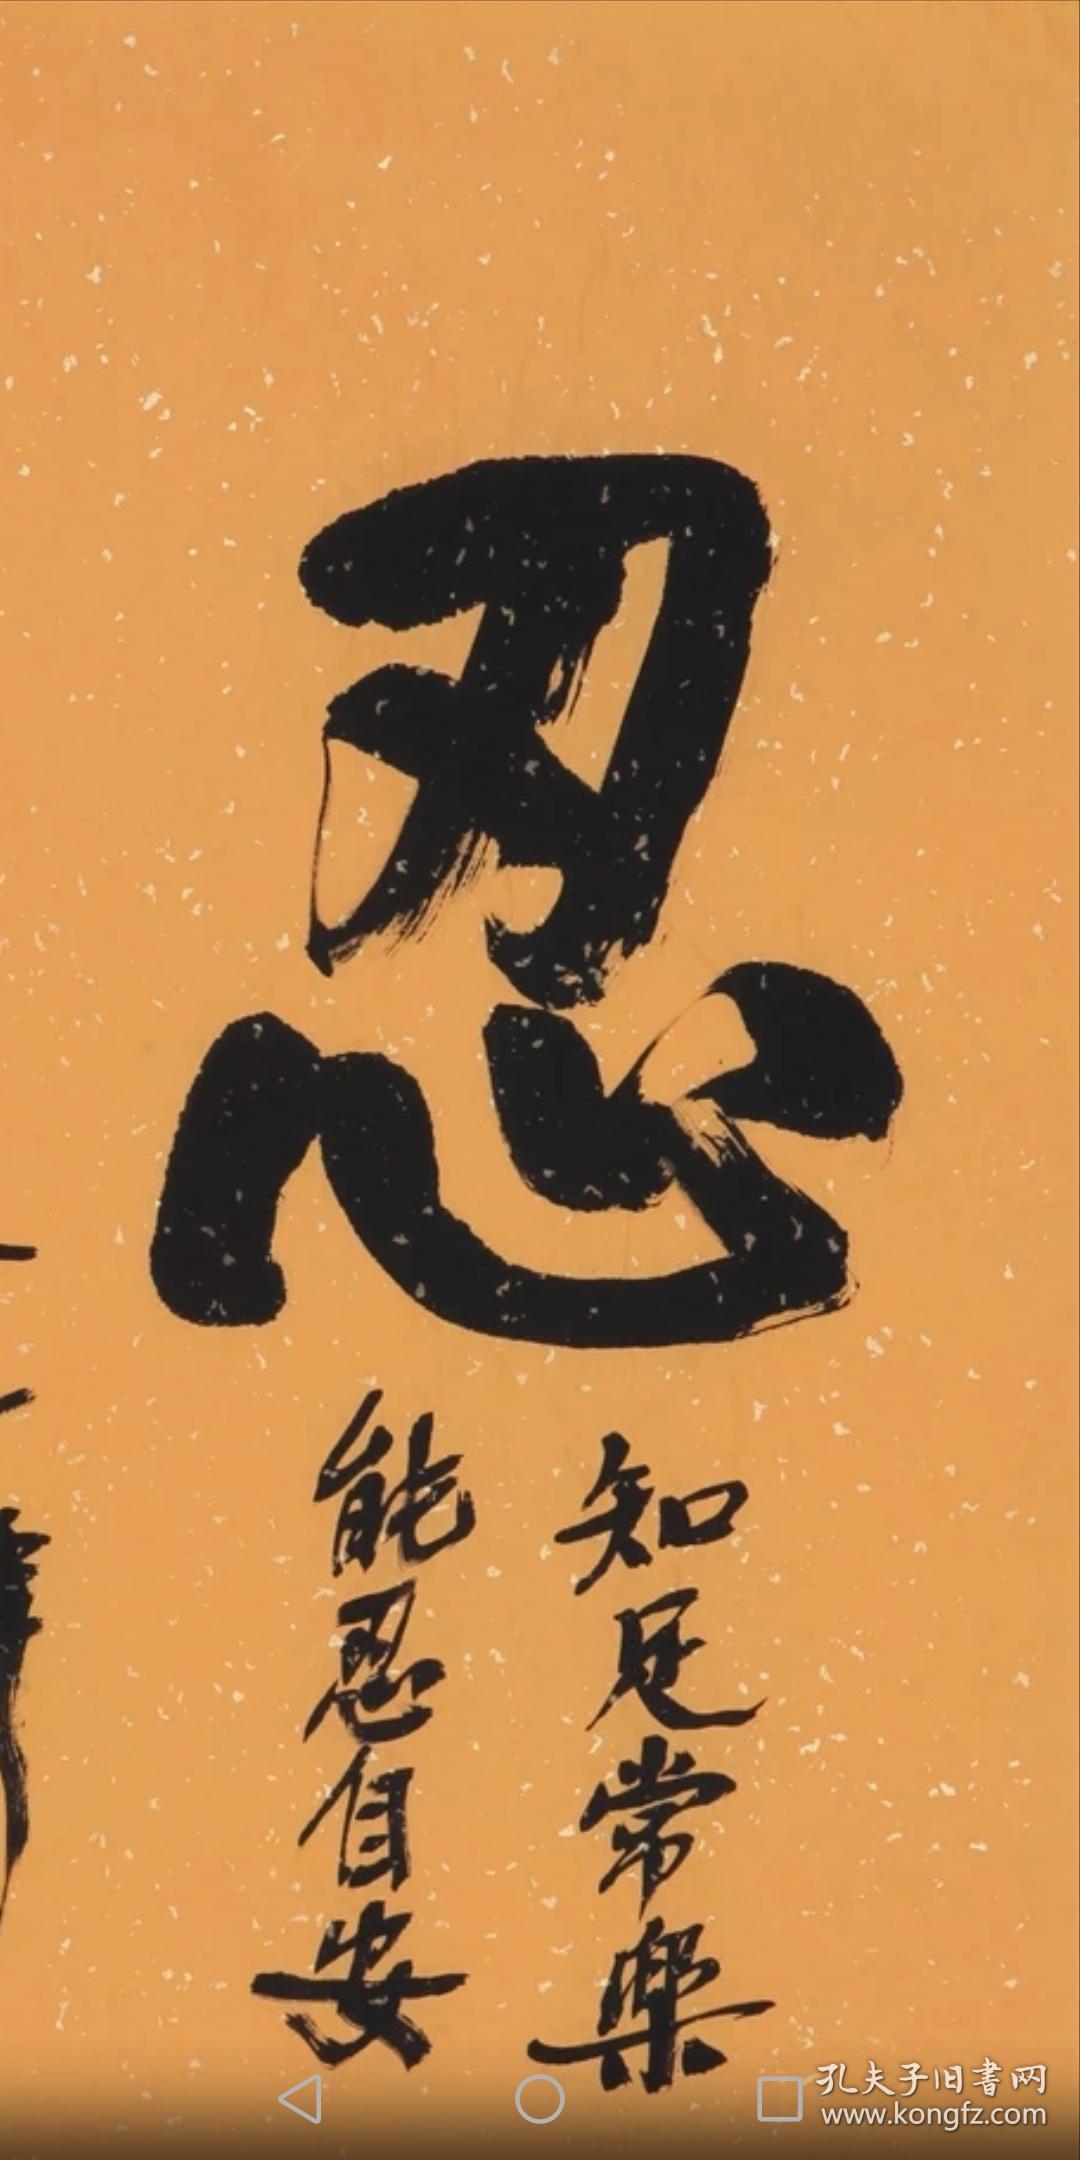 忍
知足常樂
能忍自安
孔夫子旧書网
www.kongfz.com